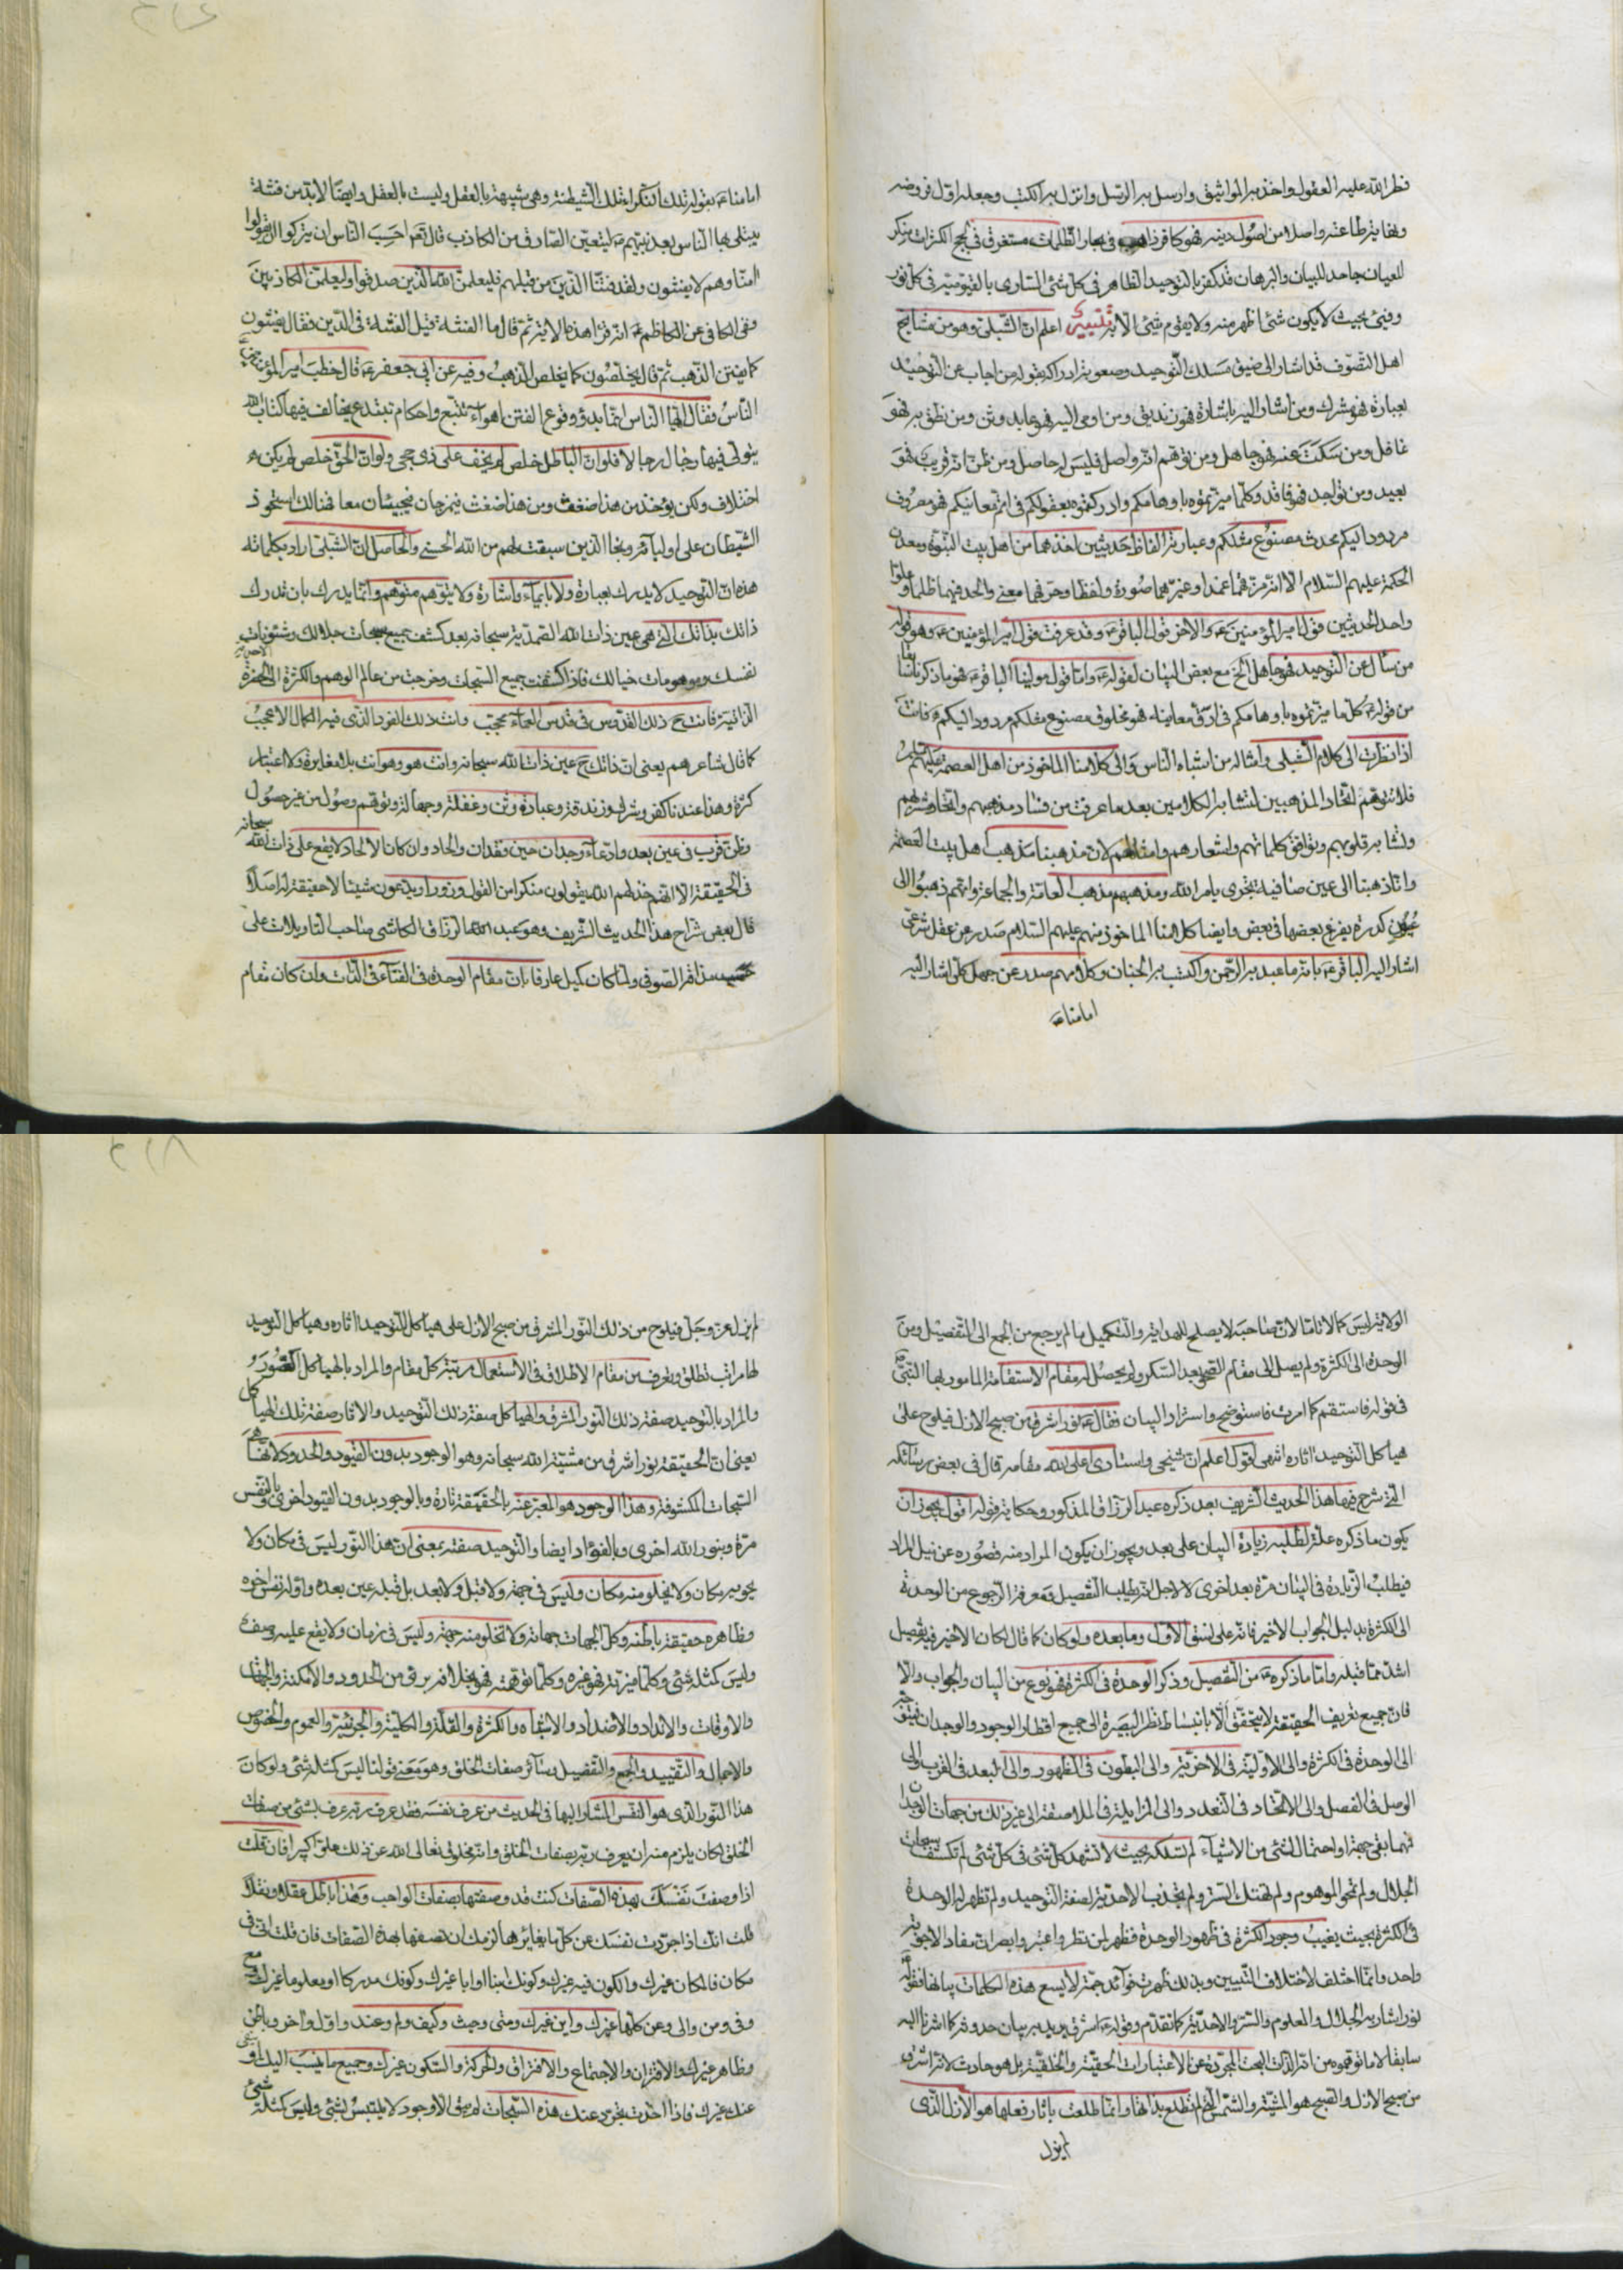 فطر الله عليه العقول واخذ به المواثيق وارسل به الرسل وانزل به الكتب وجعله اول فروضه
ونهاية شرطا عنه واصلا من اصول دينه فهو كافر في بحار الظلمات مستغرق في لجج الكثرات منكر
للعيان جاحد للبيان والبرهان فقد كفر بالتوحيد الظاهر في كل شئ الساري بالقيومية في كل نور
وفئ بحيث لا يكون شئ اظهر منه ولا يقوم شئ الا به تنبيه اعلم ان الشبلي وهو من مشايخ
اهل التصوف قد اشار الى ضيق مسلك التوحيد وصعوبة ادراكه بقوله من اجاب عن التوحيد
بعبارة فهو مشرك ومن اشار اليه باشارة فهو زنديق ومن اومى اليه فهو عابد وثن ومن نطق به فهو
غافل ومن سكت عنه فهو جاهل ومن توهم انه واصل فليس له حاصل ومن ظن انه قريب فهو
بعيد ومن تواجد فهو فاقد وكلما ميزتموه باوهامكم وادركتموه بعقولكم في اتم معانيكم فهو مصروف
مردود اليكم محدث مصنوع مثلكم وعبارته الفاظ حديثين اخذهما من اهل بيت النبوة ومعدن
الحكمة عليهم السلام الا انه حرفهما عمدا وغيرهما صورة ولفظا وحرفهما معنى والحد فيهما ظلما وعلوا
واحد الحديثين قول امير المؤمنين ع والاخر قول الباقر ع وقد عرفت قول امير المؤمنين ع وهو قوله
من سأل عن التوحيد فهو جاهل الخ مع بعض البيان لقوله ع واما قول مولينا الباقر ع فهو ما ذكرنا سابقا
من قوله ع كل ما ميزتموه باوهامكم في ادق معانيه فهو مخلوق مصنوع مثلكم مردود اليكم فانت
اذا نظرت الى كلام الشبلي وامثاله من اشباه الناس والى كلامنا الماخوذ من اهل العصمة عليهم السلام
فلا تتوهم اتحاد المذهبين لتشابه الكلامين بعد ما عرفت من فساد مذهبهم واتحاد شربهم
وتشابه قلوبهم وتوافق كلماتهم واشعارهم وامثالهم لان مذهبنا مذهب اهل بيت العصمة
وانا ذهبنا الى عين صافية تجرى بامر الله ومذهبهم مذهب العامة والجماعة وانهم ذهبوا الى
عيون كدرة يفرغ بعضها في بعض وايضا كلامنا الماخوذ منهم عليهم السلام صدر عن عقل شرعي
اشار اليه الباقر ع بانه ما عبد به الرحمن واكتسب به الجنان وكلامهم صدر عن جهل كلي اشار اليه
امامنا ع
امامنا ع بقوله تلك النكراء تلك الشيطنة وهى شبيهة بالعقل وليست بالعقل وايضا لا بد من فتنة
يبتلى بها الناس بعد نبيهم ص ليتعين الصادق من الكاذب قال تع احسب الناس ان يتركوا ان يقولوا
امنا وهم لا يفتنون ولقد فتنا الذين من قبلهم فليعلمن الله الذين صدقوا وليعلمن الكاذبين
وفي الكافي عن الكاظم ع انه قرأ هذه الاية ثم قال ما الفتنة قيل الفتنة في الدين فقال يفتنون
كما يفتن الذهب ثم قال يخلصون كما يخلص الذهب وفيه عن ابي جعفر ع قال خطب امير المؤمنين ع
الناس فقال ايها الناس انما بدؤ وقوع الفتن اهواء تتبع واحكام تبتدع يخالف فيها كتاب الله
يتولى فيها رجال رجالا فلو ان الباطل خلص لم يخف على ذي حجى ولو ان الحق خلص لم يكن
اختلاف ولكن يؤخذ من هذا ضغث ومن هذا ضغث فيمزجان فيجيئان معا فهنالك استحوذ
الشيطان على اوليائه ونجا الذين سبقت لهم من الله الحسنى والحاصل ان الشبلي اراد بكلماته
هذه ان التوحيد لا يدرك بعبارة ولا بايماء واشارة ولا يتوهم متوهم وانما يدرك بان تدرك
ذاتك بذاتك التي هي عين ذات الله الصمدية سبحانه بعد كشف جميع سبحات جلالك وشئونات
نفسك وموهومات خيالك فاذا كشفت جميع السبحات وخرجت من عالم الوهم والكثرة الى الحضرة
الذاتية فانت ح ذلك القدوس في قدس العماء محجب وانت ذلك الفرد الذى فيه الكمال الاعجب
كما قال شاعرهم يعنى ان ذاتك ح عين ذات الله سبحانه وانت هو وهو انت بلا مغايرة ولا اعتبار
كثرة وهذا عندنا كفر وشرك وزندقة وعبادة وثن وغفلة وجهالة وتوهم وصول من غير حصول
وظن قرب في عين بعد وادعاء وجدان حين فقدان والحاد وان كان الالحاد لا يقع على ذات الله سبحانه
في الحقيقة الا انهم خذلهم الله يقولون منكرا من القول وزورا ويدعون شيئا لا حقيقة له اصلا
قال بعض شراح هذا الحديث الشريف وهو عبد الرزاق الكاشي صاحب التاويلات على
مذاقه الصوفي ولما كان كميل عارفا بان مقام الوحدة في الفناء في الذات وان كان مقام
الولاية ليس كمالا تاما لان صاحبه لا يصلح للهداية والتكميل ما لم يرجع من الجمع الى التفصيل ومن
الوحدة الى الكثرة ولم يصل الى مقام الصحو بعد السكر ولم يحصل له مقام الاستقامة المامور بها النبي ص
في قوله فاستقم كما امرت فاستوضح واستزاد البيان فقال ع نور اشرق من صبح الازل فيلوح على
هياكل التوحيد اثاره انتهى اقول اعلم ان شيخي واستادى اعلى الله مقامه قال في بعض رسائله
التي شرح فيها هذا الحديث الشريف بعد ذكره عبد الرزاق المذكور وحكاية قوله اقول يجوز ان
يكون ما ذكره علة لطلبه زيادة البيان على بعد ويجوز ان يكون المراد منه قصوره عن نيل المراد
فيطلب الزيادة في البيان مرة بعد اخرى لا لاجل انه يطلب التفصيل ومعرفة الرجوع من الوحدة
الى الكثرة بدليل الجواب الاخير فانه على نسق الاول وما بعده ولو كان كما قال لكان الاخير فيه تفصيل
اشد مما قبله واما ما ذكره ع من التفصيل وذكر الوحدة في الكثرة فهو نوع من البيان والجواب والا
فان جميع تعريف الحقيقة لا يتحقق الا بانبساط نظر البصيرة الى جميع اقطار الوجود والوجدان فيتوجه
الى الوحدة في الكثرة والى الاولية في الاخرية والى البطون في الظهور والى البعد في القرب والى
الوصل في الفصل والى الاتحاد في التعدد والى المزايلة في الملاصقة الى غير ذلك من جهات الوجدان
فمهما بقى جهة او احتمال لشئ من الاشياء لم تسلكه بحيث لا تشهد كل شئ في كل شئ لم تكشف سبحات
الجلال ولم تمحو الموهوم ولم تهتك الستر ولم تجذب الاحدية لصفة التوحيد ولم تظهر له الوحدة
في الكثرة بحيث يغيب وجود الكثرة في ظهور الوحدة فظهر لمن نظر واعتبر وابصر ان مفاد الاجوبة
واحد وانما اختلف لاختلاف التبيين وبذلك ظهرت فوائد جمة لا يسع هذه الكلمات بيانها فقوله ع
نور اشار به الجلال والمعلوم والستر والاحدية كما تقدم وقوله ع اشرق يريد به بيان حدوثه كما اشرنا اليه
سابقا لا ما توهموه من انه الذات البحت المجردة عن الاعتبارات الحقية والخلقية بل هو حادث لانه اشرق
من صبح الازل والصبح هو المشية والشمس التي لم تطلع بذاتها وانما طلعت باثار فعلها هو الازل الذي
لم يزل
لم يزل عز وجل فيلوح من ذلك النور المشرق من صبح الازل على هياكل التوحيد اثاره وهياكل التوحيد
لها مراتب تطلق وتعرف من مقام الاطلاق في الاستعمال مرتبة كل مقام والمراد بالهياكل الصور و
والمراد بالتوحيد صفة ذلك النور المشرق والهياكل صفة ذلك التوحيد والاثار صفة تلك الهياكل
يعنى ان الحقيقة نور اشرق من مشية الله سبحانه وهو الوجود بدون القيود والحدود لانها هي
السبحات المكشوفة وهذا الوجود هو المعبر عنه بالحقيقة تارة وبالوجود بدون القيود اخرى وبالنفس
مرة وبنور الله اخرى وبالفؤاد ايضا والتوحيد صفته بمعنى ان هذا النور ليس في مكان ولا
يحويه مكان ولا يخلو منه مكان وليس في جهة ولا قبل ولا بعد بل قبله عين بعده واوله نفس اخره
وظاهره حقيقة باطنه وكل الجهات جهاته ولا تخلو منه جهة وليس في زمان ولا يقع عليه وصف
وليس كمثله شئ وكلما ميزته فهو غيره وكلما توهمته فهو بخلافه برئ من الحدود والامكنة والجهات
والاوقات والانداد والاضداد والاشباه والكثرة والقلة والكلية والجزئية والعموم والخصوص
والاجمال والتقييد والجمع والتفصيل وسائر صفات الخلق وهو معنى قولنا ليس كمثله شئ ولو كان
هذا النور الذى هو النفس المشار اليها في الحديث من عرف نفسه فقد عرف ربه عرف بشئ من صفات
الخلق لكان يلزم منه ان يعرف ربه بصفات الخلق وانه مخلوق تعالى الله عن ذلك علوا كبيرا فان قلت
اذا وصفت نفسك بهذه الصفات كنت قد وصفتها بصفات الواجب وهذا باطل عقلا ونقلا
قلت انك اذا جردت نفسك عن كل ما يغايرها لزمك ان تصفها بهذه الصفات فان قلت انى في
مكان فالمكان غيرك والكون فيه غيرك وكونك ابنا او ابا غيرك وكونك مدركا او معلوما غيرك
وفي ومن والى وعن كلها غيرك واين غيرك ومتى وحيث وكيف ولم وعند واول واخر وباطن
وظاهر غيرك والاقتران والاجتماع والافتراق والحركة والسكون غيرك وجميع ما ينسب اليك
عنك غيرك فاذا اخذت تجرد عنك هذه السبحات لم يبق الا وجود لا يلتبس بشئ وليس كمثله شئ